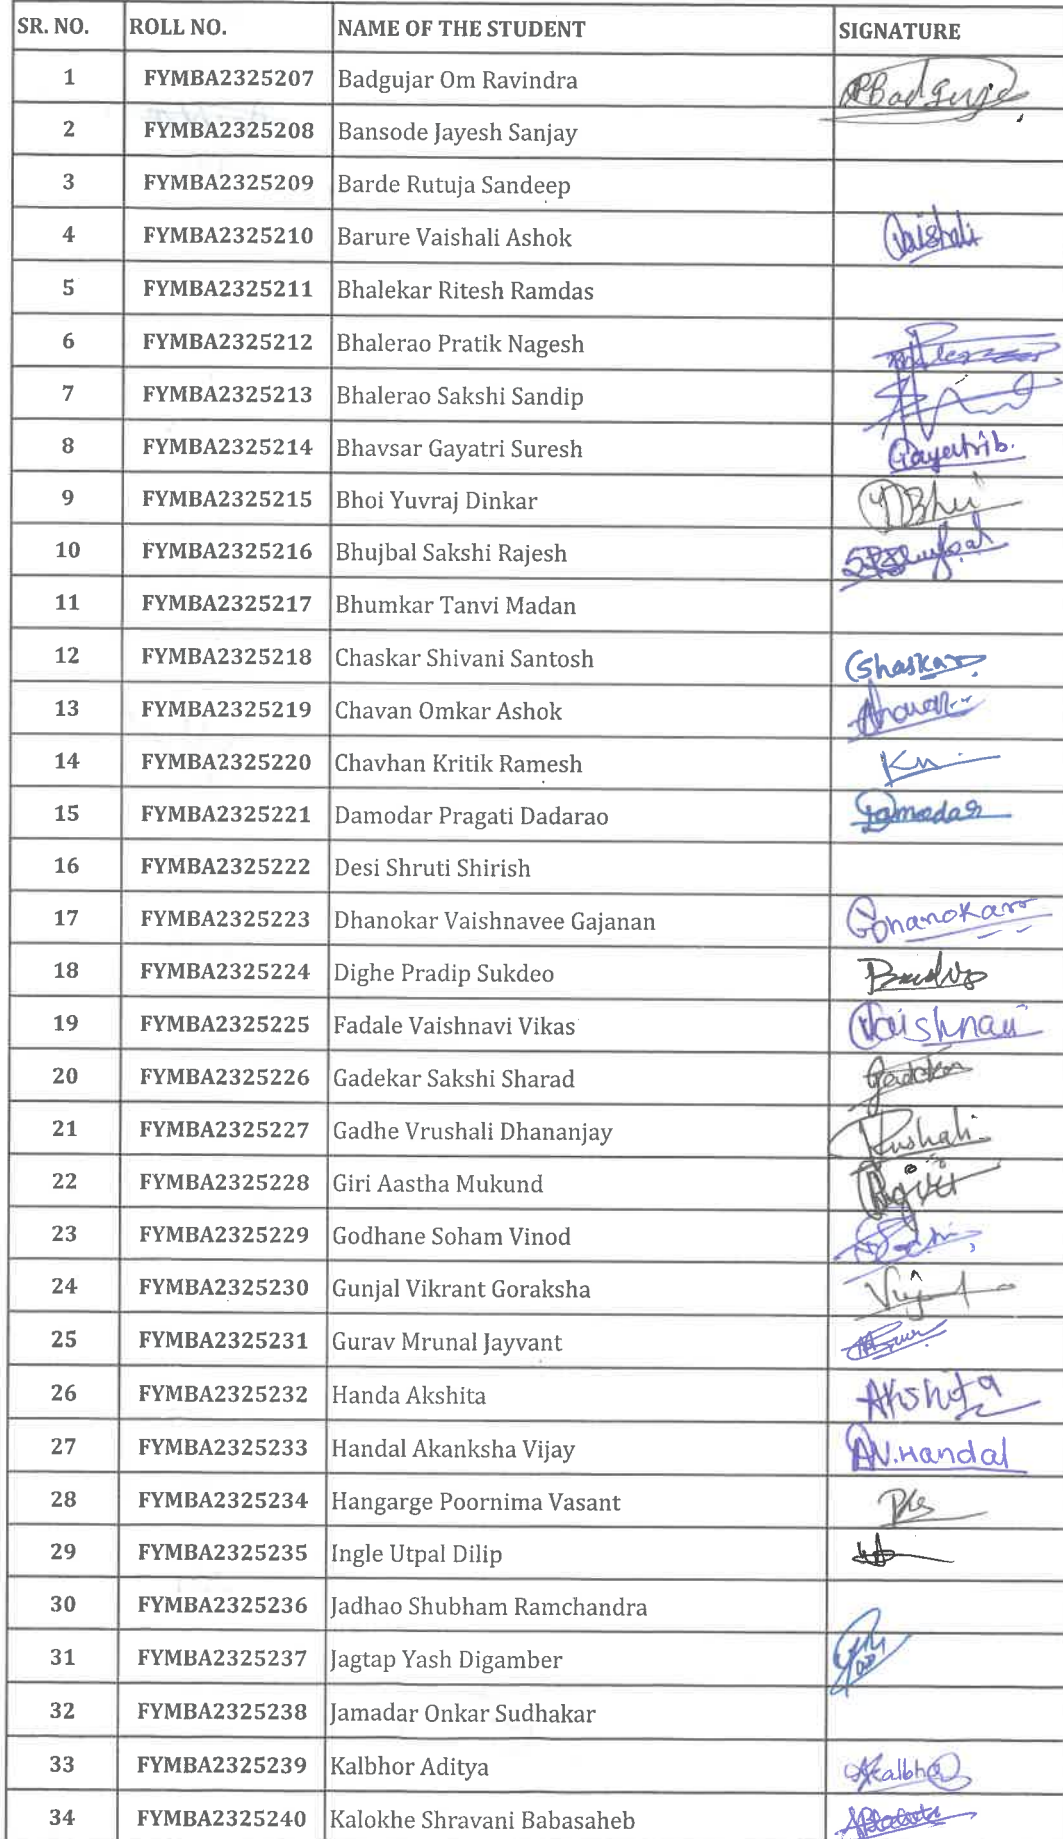 SR. NO. ROLL NO. NAME OF THE STUDENT SIGNATURE
1 FYMBA2325207 Badgujar Om Ravindra
2 FYMBA2325208 Bansode Jayesh Sanjay
3 FYMBA2325209 Barde Rutuja Sandeep
4 FYMBA2325210 Barure Vaishali Ashok Vaishali
5 FYMBA2325211 Bhalekar Ritesh Ramdas
6 FYMBA2325212 Bhalerao Pratik Nagesh
7 FYMBA2325213 Bhalerao Sakshi Sandip
8 FYMBA2325214 Bhavsar Gayatri Suresh Gayatrib.
9 FYMBA2325215 Bhoi Yuvraj Dinkar
10 FYMBA2325216 Bhujbal Sakshi Rajesh
11 FYMBA2325217 Bhumkar Tanvi Madan
12 FYMBA2325218 Chaskar Shivani Santosh
13 FYMBA2325219 Chavan Omkar Ashok
14 FYMBA2325220 Chavhan Kritik Ramesh
15 FYMBA2325221 Damodar Pragati Dadarao
16 FYMBA2325222 Desi Shruti Shirish
17 FYMBA2325223 Dhanokar Vaishnavee Gajanan
18 FYMBA2325224 Dighe Pradip Sukdeo
19 FYMBA2325225 Fadale Vaishnavi Vikas
20 FYMBA2325226 Gadekar Sakshi Sharad
21 FYMBA2325227 Gadhe Vrushali Dhananjay
22 FYMBA2325228 Giri Aastha Mukund
23 FYMBA2325229 Godhane Soham Vinod
24 FYMBA2325230 Gunjal Vikrant Goraksha
25 FYMBA2325231 Gurav Mrunal Jayvant
26 FYMBA2325232 Handa Akshita Akshita
27 FYMBA2325233 Handal Akanksha Vijay AV.Handal
28 FYMBA2325234 Hangarge Poornima Vasant
29 FYMBA2325235 Ingle Utpal Dilip
30 FYMBA2325236 Jadhao Shubham Ramchandra
31 FYMBA2325237 Jagtap Yash Digamber
32 FYMBA2325238 Jamadar Onkar Sudhakar
33 FYMBA2325239 Kalbhor Aditya
34 FYMBA2325240 Kalokhe Shravani Babasaheb